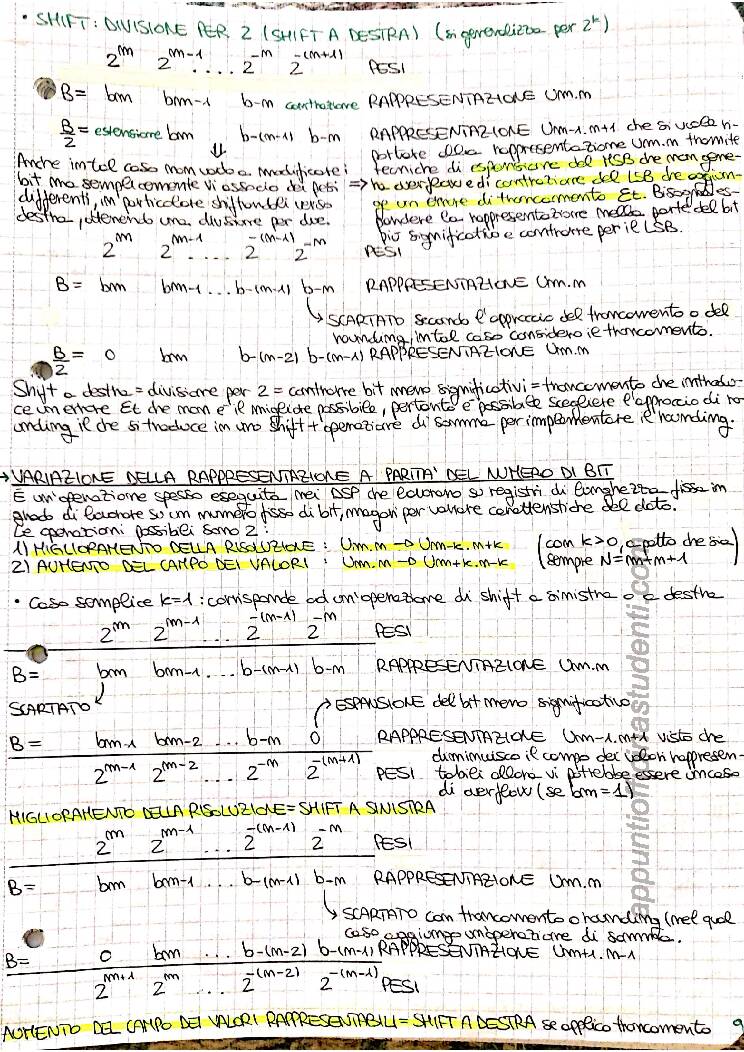 • SHIFT: DIVISIONE PER 2 (SHIFT A DESTRA) (si generalizza per 2^k)
2^m 2^m-1 .... 2^-m 2^-(m+1) PESI
B= bm bm-1 b-m contrazione RAPPRESENTAZIONE Um.m
B/2 = estensione bm b-(m-1) b-m RAPPRESENTAZIONE Um-1.m+1 che si vuole ri-
portare alla rappresentazione Um.m tramite
tecniche di espansione del MSB che non gene-
ra overflow e di contrazione del LSB che aggiun-
ge un errore di troncamento Et. Bisogna es-
pandere la rappresentazione nella parte del bit
più significativo e contrarre per il LSB.
⇓
Anche in tal caso non vado a modificare i
bit ma semplicemente vi associo dei pesi ⇒
differenti, in particolare shiftandoli verso
destra, ottenendo una divisione per due.
2^m 2^m-1 2^-(m-1) 2^-m PESI
B= bm bm-1 ... b-(m-1) b-m RAPPRESENTAZIONE Um.m
↳ SCARTATO secondo l'approccio del troncamento o del
rounding, in tal caso considero il troncamento.
B/2 = 0 bm b-(m-2) b-(m-1) RAPPRESENTAZIONE Um.m
Shift a destra = divisione per 2 = contrarre bit meno significativi = troncamento che introdu-
ce un errore Et che non è il migliore possibile, pertanto è possibile scegliere l'approccio di ro-
unding il che si traduce in uno shift + operazione di somma per implementare il rounding.
→ VARIAZIONE DELLA RAPPRESENTAZIONE A PARITA' DEL NUMERO DI BIT
È un'operazione spesso eseguita nei DSP che lavorano su registri di lunghezza fissa in
grado di lavorare su un numero fisso di bit, magari per variare caratteristiche del dato.
Le operazioni possibili sono 2:
1) MIGLIORAMENTO DELLA RISOLUZIONE : Um.m → Um-k.m+k (con k>0, a patto che sia
2) AUMENTO DEL CAMPO DEI VALORI : Um.m → Um+k.m-k sempre N=m+m+1)
• Caso semplice k=1: corrisponde ad un'operazione di shift a sinistra o a destra
2^m 2^m-1 ... 2^-(m-1) 2^-m PESI
B= bm bm-1 ... b-(m-1) b-m RAPPRESENTAZIONE Um.m
SCARTATO ↙ ↱ ESPANSIONE del bit meno significativo
B= bm-1 bm-2 ... b-m 0 RAPPRESENTAZIONE Um-1.m+1 visto che
diminuisco il campo dei valori rappresen-
2^m-1 2^m-2 ... 2^-m 2^-(m+1) PESI tabili allora vi potrebbe essere un caso
di overflow (se bm=1)
MIGLIORAMENTO DELLA RISOLUZIONE = SHIFT A SINISTRA
2^m 2^m-1 ... 2^-(m-1) 2^-m PESI
B= bm bm-1 ... b-(m-1) b-m RAPPRESENTAZIONE Um.m
↳ SCARTATO con troncamento o rounding (nel qual
caso aggiungo un'operazione di somma.
B= 0 bm ... b-(m-2) b-(m-1) RAPPRESENTAZIONE Um+1.m-1
2^m+1 2^m ... 2^-(m-2) 2^-(m-1) PESI
AUMENTO DEL CAMPO DEI VALORI RAPPRESENTABILI = SHIFT A DESTRA se applico troncamento 9